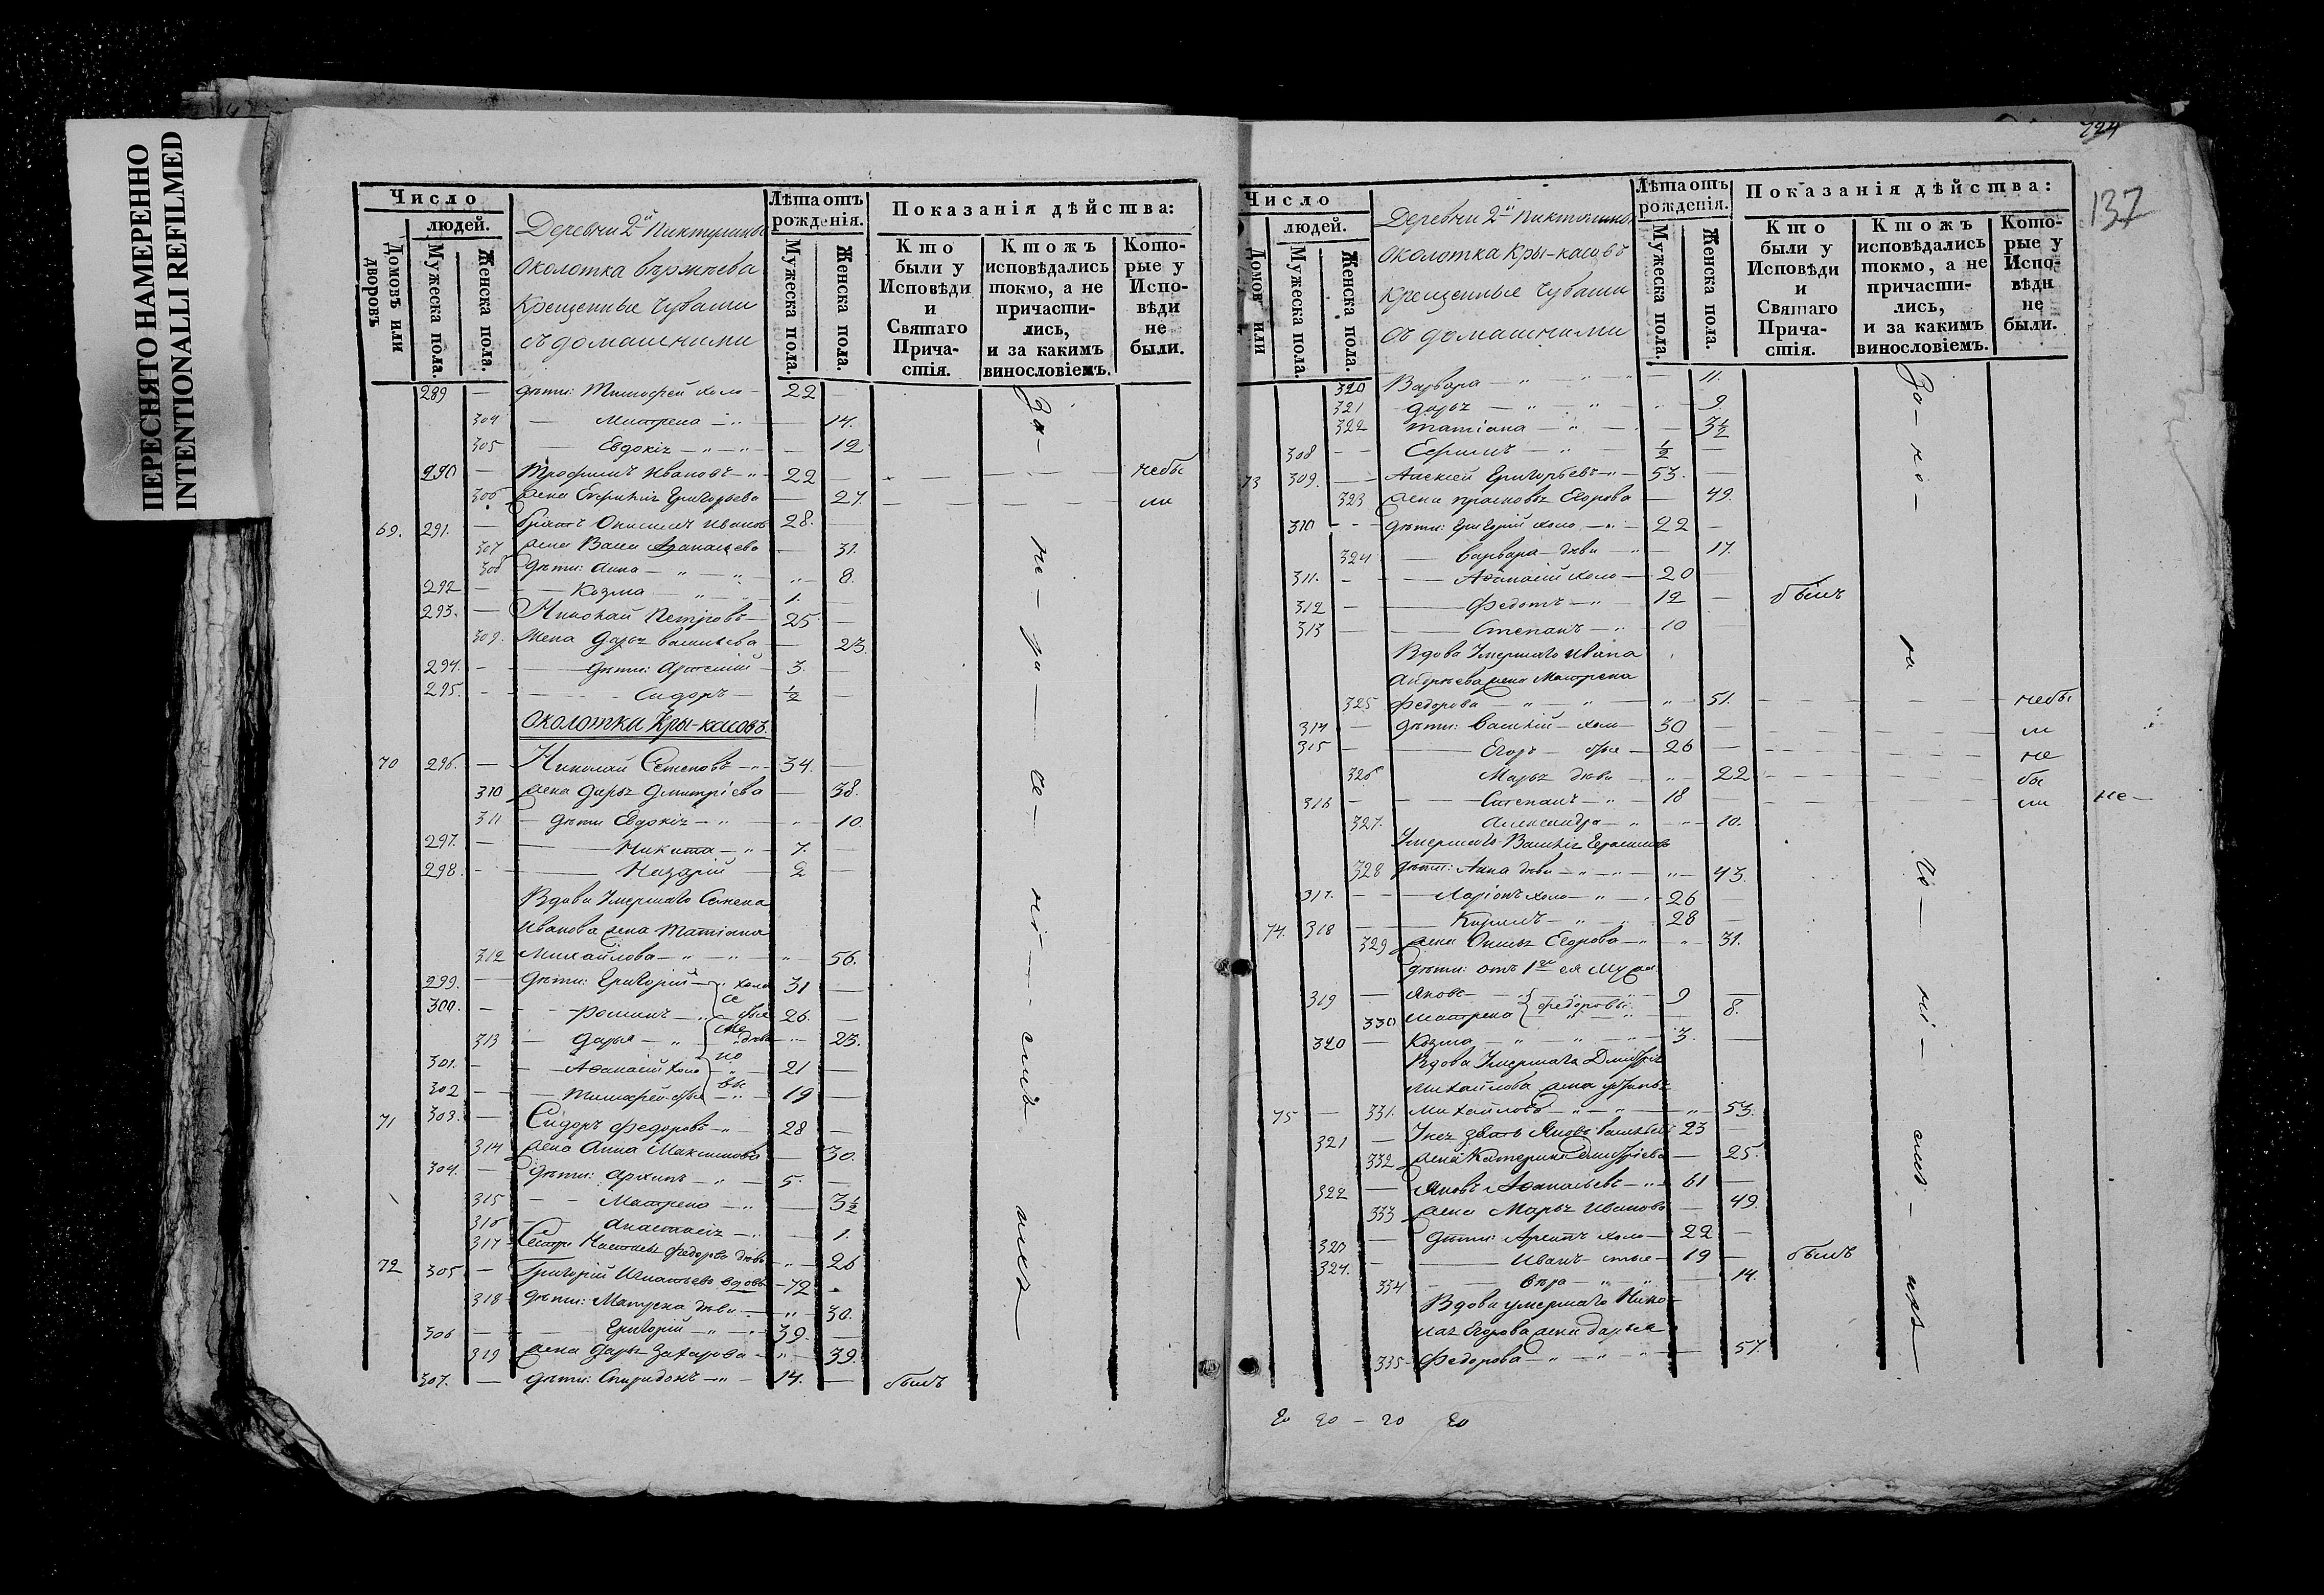 ПЕРЕСНЯТО НАМЕРЕННО
INTENTIONALLI REFILMED
Число
людей.
Домовъ или дворовъ
Мужеска пола.
Женска пола.
Деревни 2й
Околотка
Крещенные Чуваши
съ домашними
Лѣта отъ рожденія.
Мужеска пола.
Женска пола.
Показанія дѣйства:
Кто были у Исповѣди и Святаго Причастія.
Ктожъ исповѣдались токмо, а не причастились, и за какимъ винословіемъ.
Которые у Исповѣди не были.
289 — дѣти: Тимофей холо — 22 —
304 — Матрена — 14.
305 — Евдокія — 12
290 — Трофимъ Ивановъ — 22 — небы
306 Жена Григорьева — 27. — ли
69. 291. — Онисимъ Ивановъ 28. —
307 жена — 31.
308 дѣти: Анна — 8.
292 — Козма — 1.
293. — Николай Петровъ — 25 —
309. Жена Дарья Васильева — 23.
294. — дѣти: Артемій 3. —
295. — Сидоръ — ½ —
Околотка Кры-касовъ.
70 296. — Николай Семеновъ — 34. —
310 жена Дарья Дмитріева — 38.
311 — дѣти Евдокія — 10.
297. — Никита — 7. —
298. — Назарій — 2 —
Вдова Умершаго Семена
Иванова жена Татіана
312 Михайлова — 56.
299. — дѣти: Григорій — холо 31 —
300. — Романъ — 26. —
313 — Дарья — дѣва — 23.
301. — Афанасій холо — 21 —
302 — Тимофей — 19 —
71 303. — Сидоръ Федоровъ — 28 —
314 жена Анна Максимова — 30.
304. — дѣти: Архипъ — 5. —
315 — Матрена — 3½
316 — Анастасія — 1.
317 Сестра Федорова дѣва — 26
72 305 — Григорій Игнатьевъ вдовъ — 72
318 дѣти: дѣва — 30.
306 — Григорій — 39. —
319 жена Дарья Захарова — 39.
307. — дѣти: Спиридонъ — 14. — былъ
За-
не-
ні-
емъ
724
137
Число
людей.
Домовъ или
Мужеска пола.
Женска пола.
Деревни 2й
Околотка Кры-касовъ
Крещенные Чуваши
съ домашними
Лѣта отъ рожденія.
Мужеска пола.
Женска пола.
Показанія дѣйства:
Кто были у Исповѣди и Святаго Причастія.
Ктожъ исповѣдались токмо, а не причастились, и за какимъ винословіемъ.
Которые у Исповѣди не были.
320 Варвара — 11.
321 Дарья — 9.
322 Татіана — 3½
308 — ½ —
73 309. — Алексей Григорьевъ — 53. —
323 жена Прасковья Егорова — 49.
310 — дѣти: Григорій холо — 22 —
324 — Варвара дѣва — 17.
311. — Афанасій холо — 20 —
312 — Федотъ — 12 — былъ
313 — Степанъ — 10 —
Вдова Умершаго Ивана
Андреева жена Матрена
325 Федорова — 51. — небы
314 — дѣти: Василій — холо — 30 — ли
315 — Егоръ — 26 — не
326 Марья дѣва — 22 — бы
316 — Степанъ — 18 — ли не—
327. Александра — 10.
Умершаго Василія
328 дѣти: Анна дѣва — 43.
317. — Ларіонъ холо — 26 —
74. 318 — Кирилъ — 28 —
329 жена Егорова — 31.
дѣти: отъ 1го ея мужа
319 — Яковъ — 9 —
330 Матрена Федоровы — 8.
320 — Козма — 3. —
Вдова Умершаго Дмитрія
Михайлова жена
75 — 331. Михайлова — 53.
321 — Унея зять Яковъ Васильевъ 23 —
332 жена Катерина Дмитріева — 25.
322 — Яковъ Афанасьевъ — 61 —
333 жена Марья Иванова — 49.
323 — дѣти: холо — 22 —
324. — Иванъ — 19 — былъ
334 — Вѣра — 14.
Вдова умершаго Нико-
лая Егорова жена Дарья
335 Федорова — 57.
За-
но-
ні-
20 20 — 20 20